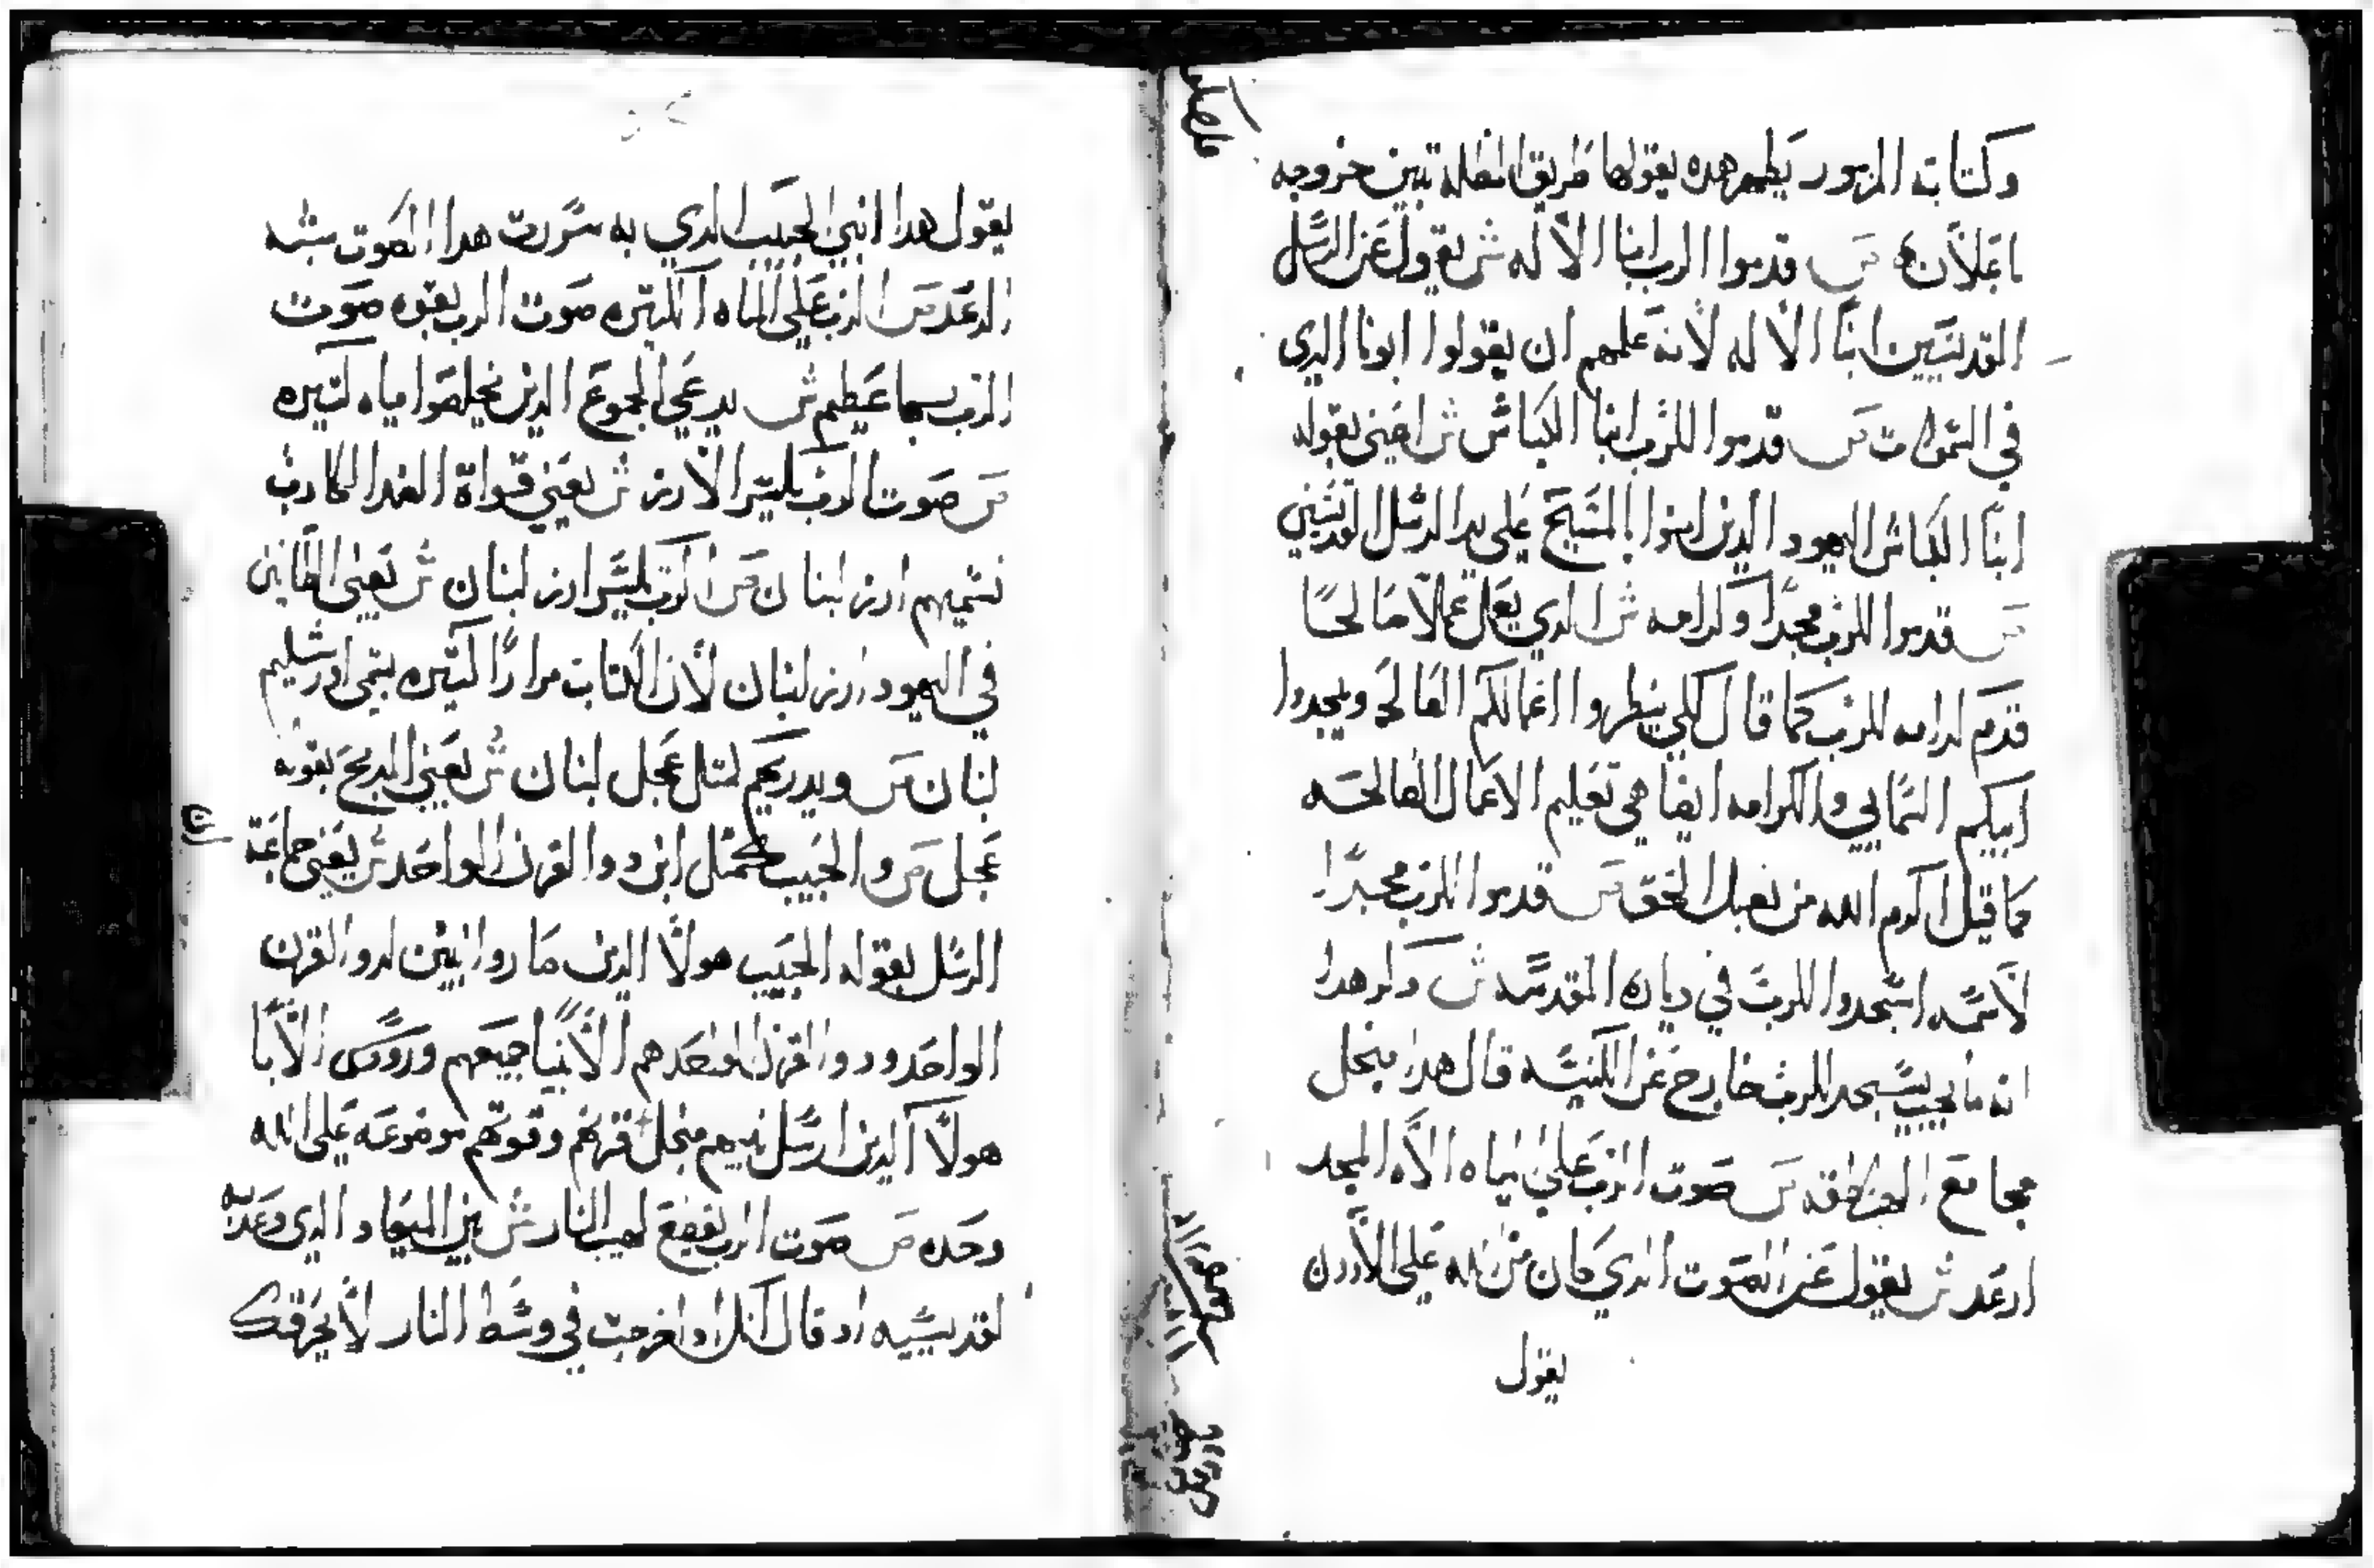 وكتابة المزمور يظهر هده بقولها طريق المظله تبين خروجه
باعلان ص قدموا الرب ابنا الاله ش يقول عن الرسل
القديسين ابنا الاله لانه علمهم ان يقولوا ابونا الدي
في السموات ص قدموا للرب ابنا الكباش ش اعني بقوله
ابنا الكباش اليهود الدين امنوا بالمسيح علي يد الرسل القديسين
ص قدموا للرب مجدا وكرامه ش الدي يعمل عملا صالحا
قدم كرامه للرب كما قال لكي ينظروا اعمالكم الصالحه ويمجدوا
ابيكم السمايي والكرامه ايضا هي تعليم الاعمال الصالحه
كما قيل اكرم الله من تعبك الحق ص قدموا للرب مجدا
لاسمه اسجدوا للرب في دياره المقدسه ش دكر هدا
انه ما يجب يسجد للرب خارج عن الكنيسه قال هدا من اجل
مجامع الهراطقه ص صوت الرب علي المياه الاه المجد
ارعد ش يقول عن الصوت الدي كان من الله علي الاردن
يقول
يقول هدا ابني الحبيب الدي به سررت هدا الصوت شبه
الرعد ص الرب علي المياه الكثيره صوت الرب بقوه صوت
الرب بسما عظيم ش يدعي الجموع الدين تخلصوا مياه كثيره
ص صوت الرب يكسر الارز ش يعني قواة العدا الكادب
نسميهم ارز لبنان ص الرب يكسر ارز لبنان ش يعني الطاين
في اليهود ارز لبنان لان الكتاب مرارا كثيره يسمي اورشليم
لبنان ص ويدريهم لمثل عجل لبنان ش يعني المدبح بقوله
عجل ص والحبيب كمثل ابن دو القرن الواحد ش يعني جماعة
الرسل بقوله الحبيب هولا الدين صاروا بنين لدو القرن
الواحد ودو القرن الواحد هم الانبيا جميعهم وروس الابا
هولا الدين ارسل اليهم من اجل قرنهم وقوتهم موضوعه علي الله
وحده ص صوت الرب يقطع لهيب النار ش بين الميعاد الدي وعد به
لقديسيه اد قال انك ادا خرجت في وسط النار لا يحرقك